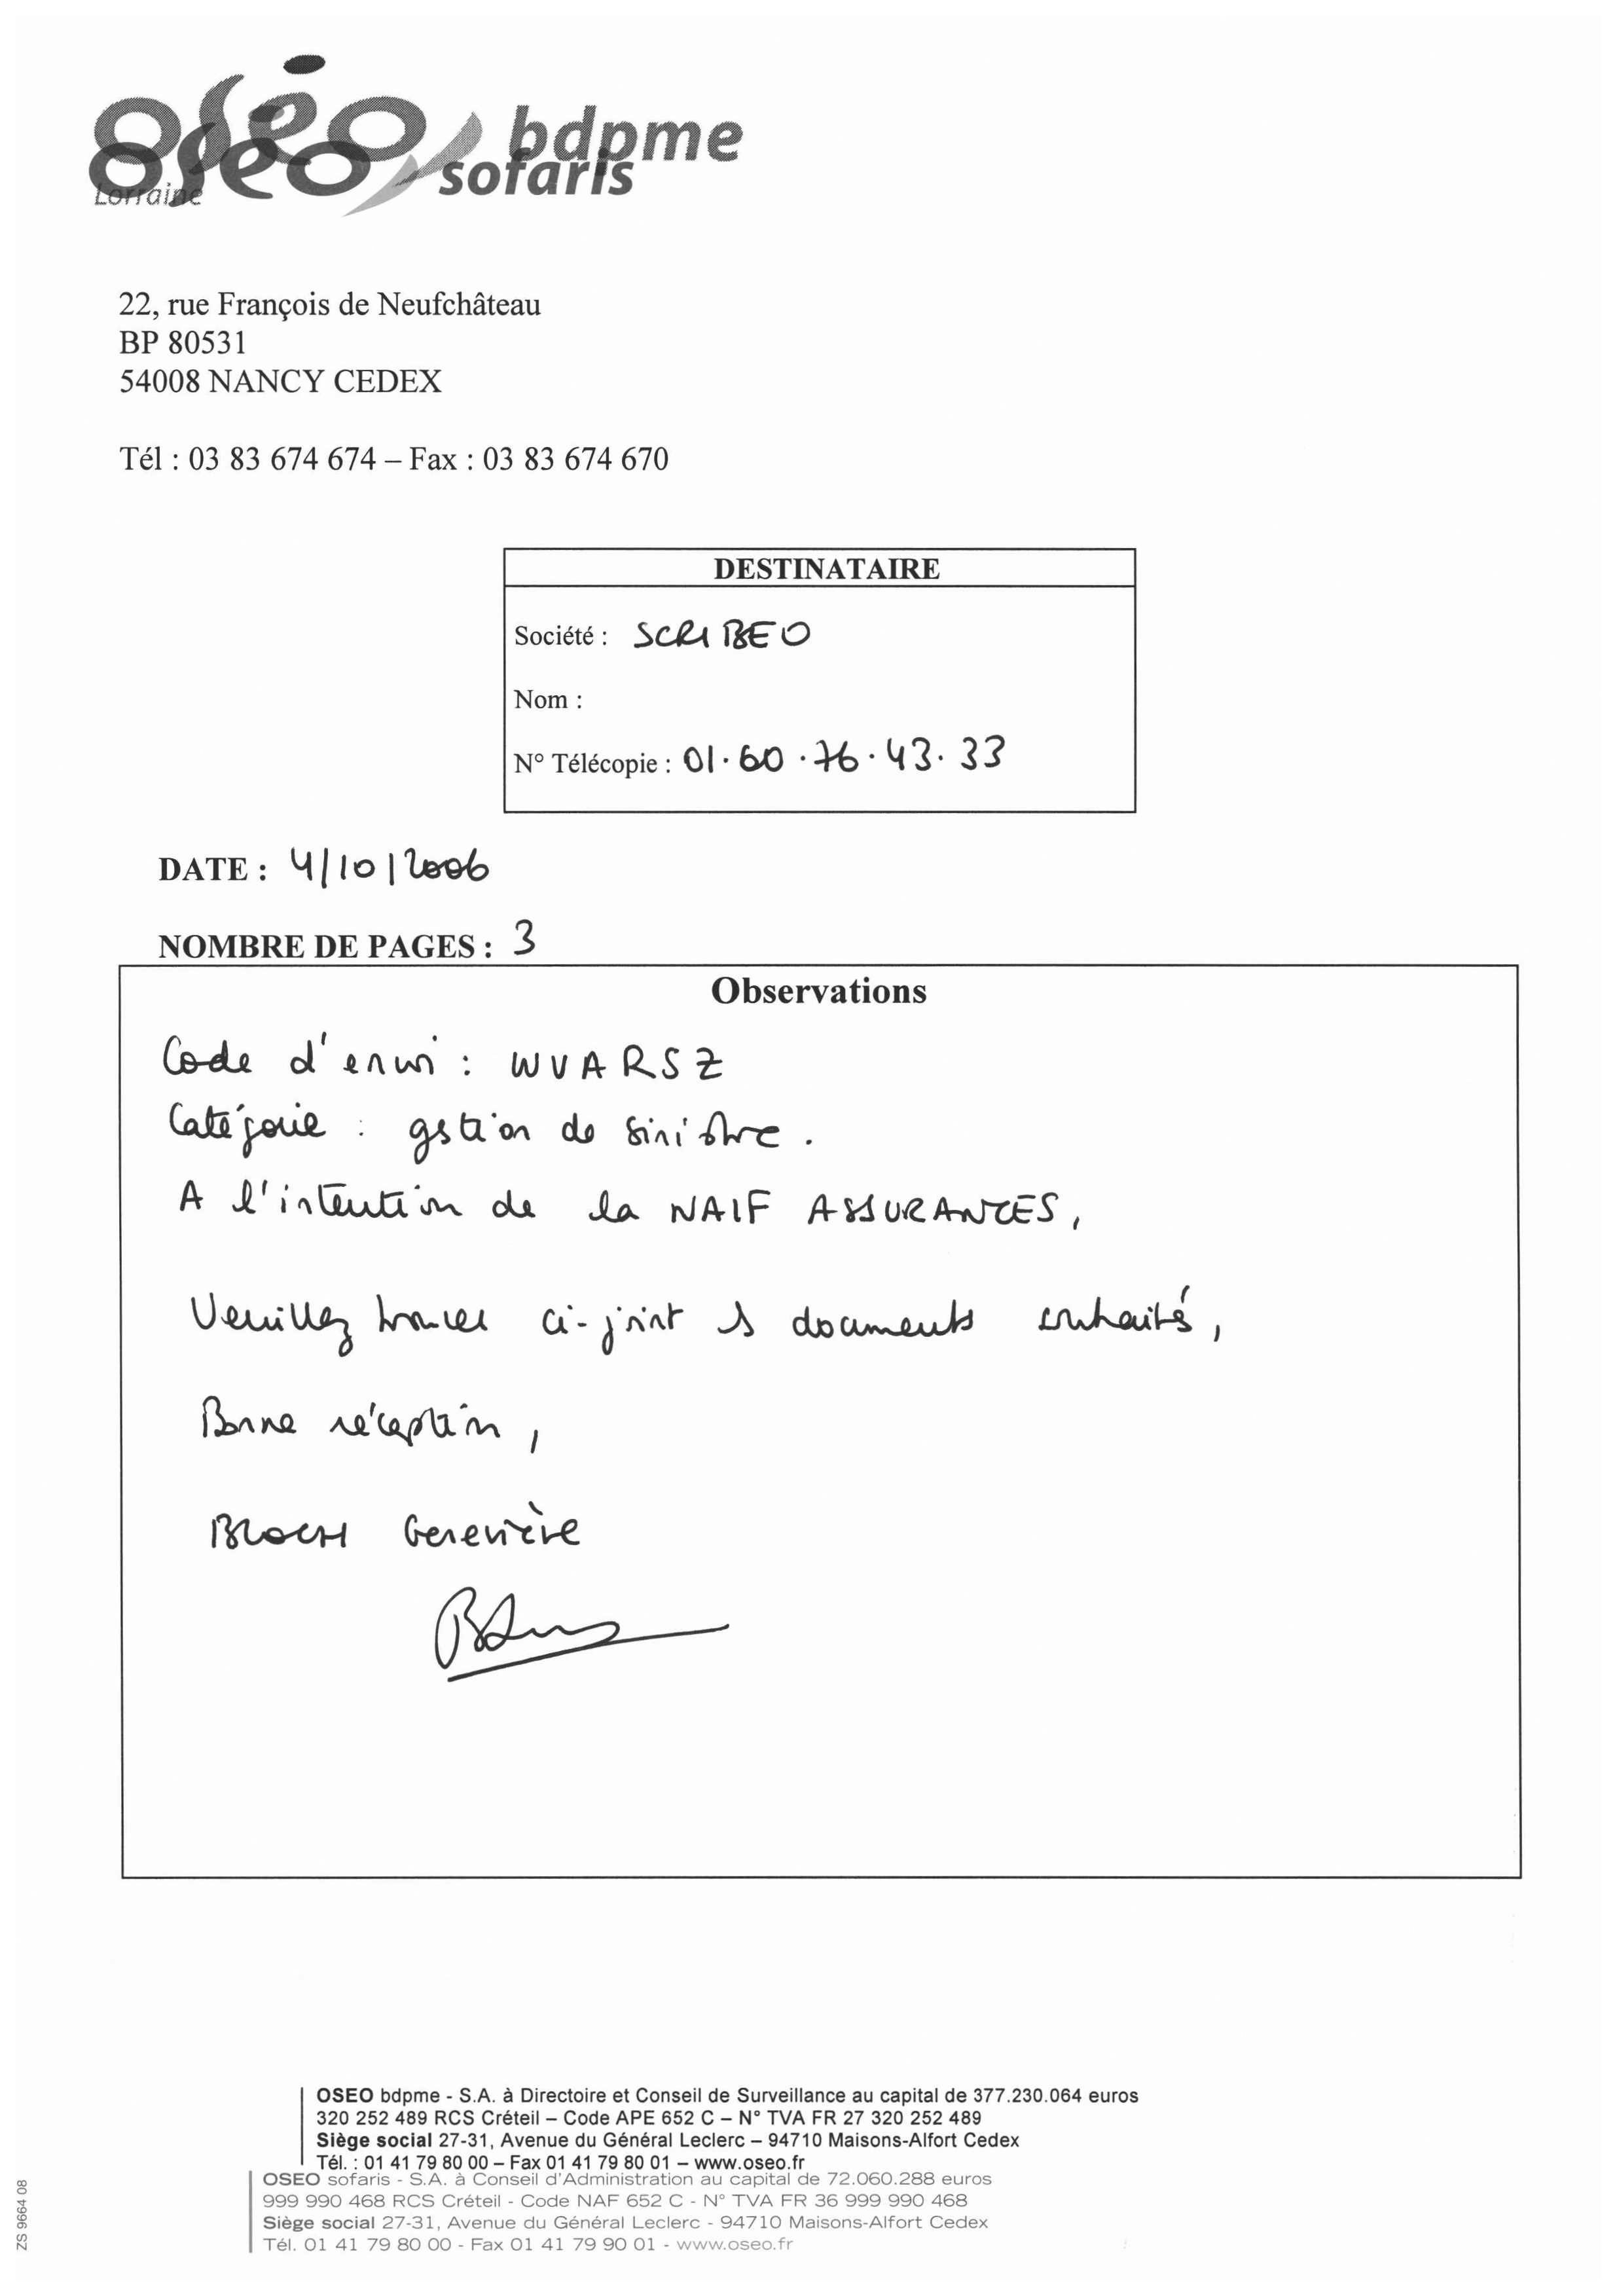 oséo bdpme
oseo sofaris
Lorraine
22, rue François de Neufchâteau
BP 80531
54008 NANCY CEDEX
Tél : 03 83 674 674 – Fax : 03 83 674 670
DESTINATAIRE
Société : SCRIBEO
Nom :
N° Télécopie : 01.60.76.43.33
DATE : 4/10/2006
NOMBRE DE PAGES : 3
Observations
Code d'envoi : WVARSZ
Catégorie : gestion de sinistre.
A l'intention de la NAIF ASSURANCES,
Veuillez trouver ci-joint les documents souhaités,
Bonne réception,
BLOCH Geneviève
OSEO bdpme - S.A. à Directoire et Conseil de Surveillance au capital de 377.230.064 euros
320 252 489 RCS Créteil – Code APE 652 C – N° TVA FR 27 320 252 489
Siège social 27-31, Avenue du Général Leclerc – 94710 Maisons-Alfort Cedex
Tél. : 01 41 79 80 00 – Fax 01 41 79 80 01 – www.oseo.fr
OSEO sofaris - S.A. à Conseil d'Administration au capital de 72.060.288 euros
999 990 468 RCS Créteil - Code NAF 652 C - N° TVA FR 36 999 990 468
Siège social 27-31, Avenue du Général Leclerc - 94710 Maisons-Alfort Cedex
Tél. 01 41 79 80 00 - Fax 01 41 79 90 01 - www.oseo.fr
ZS 9664 08